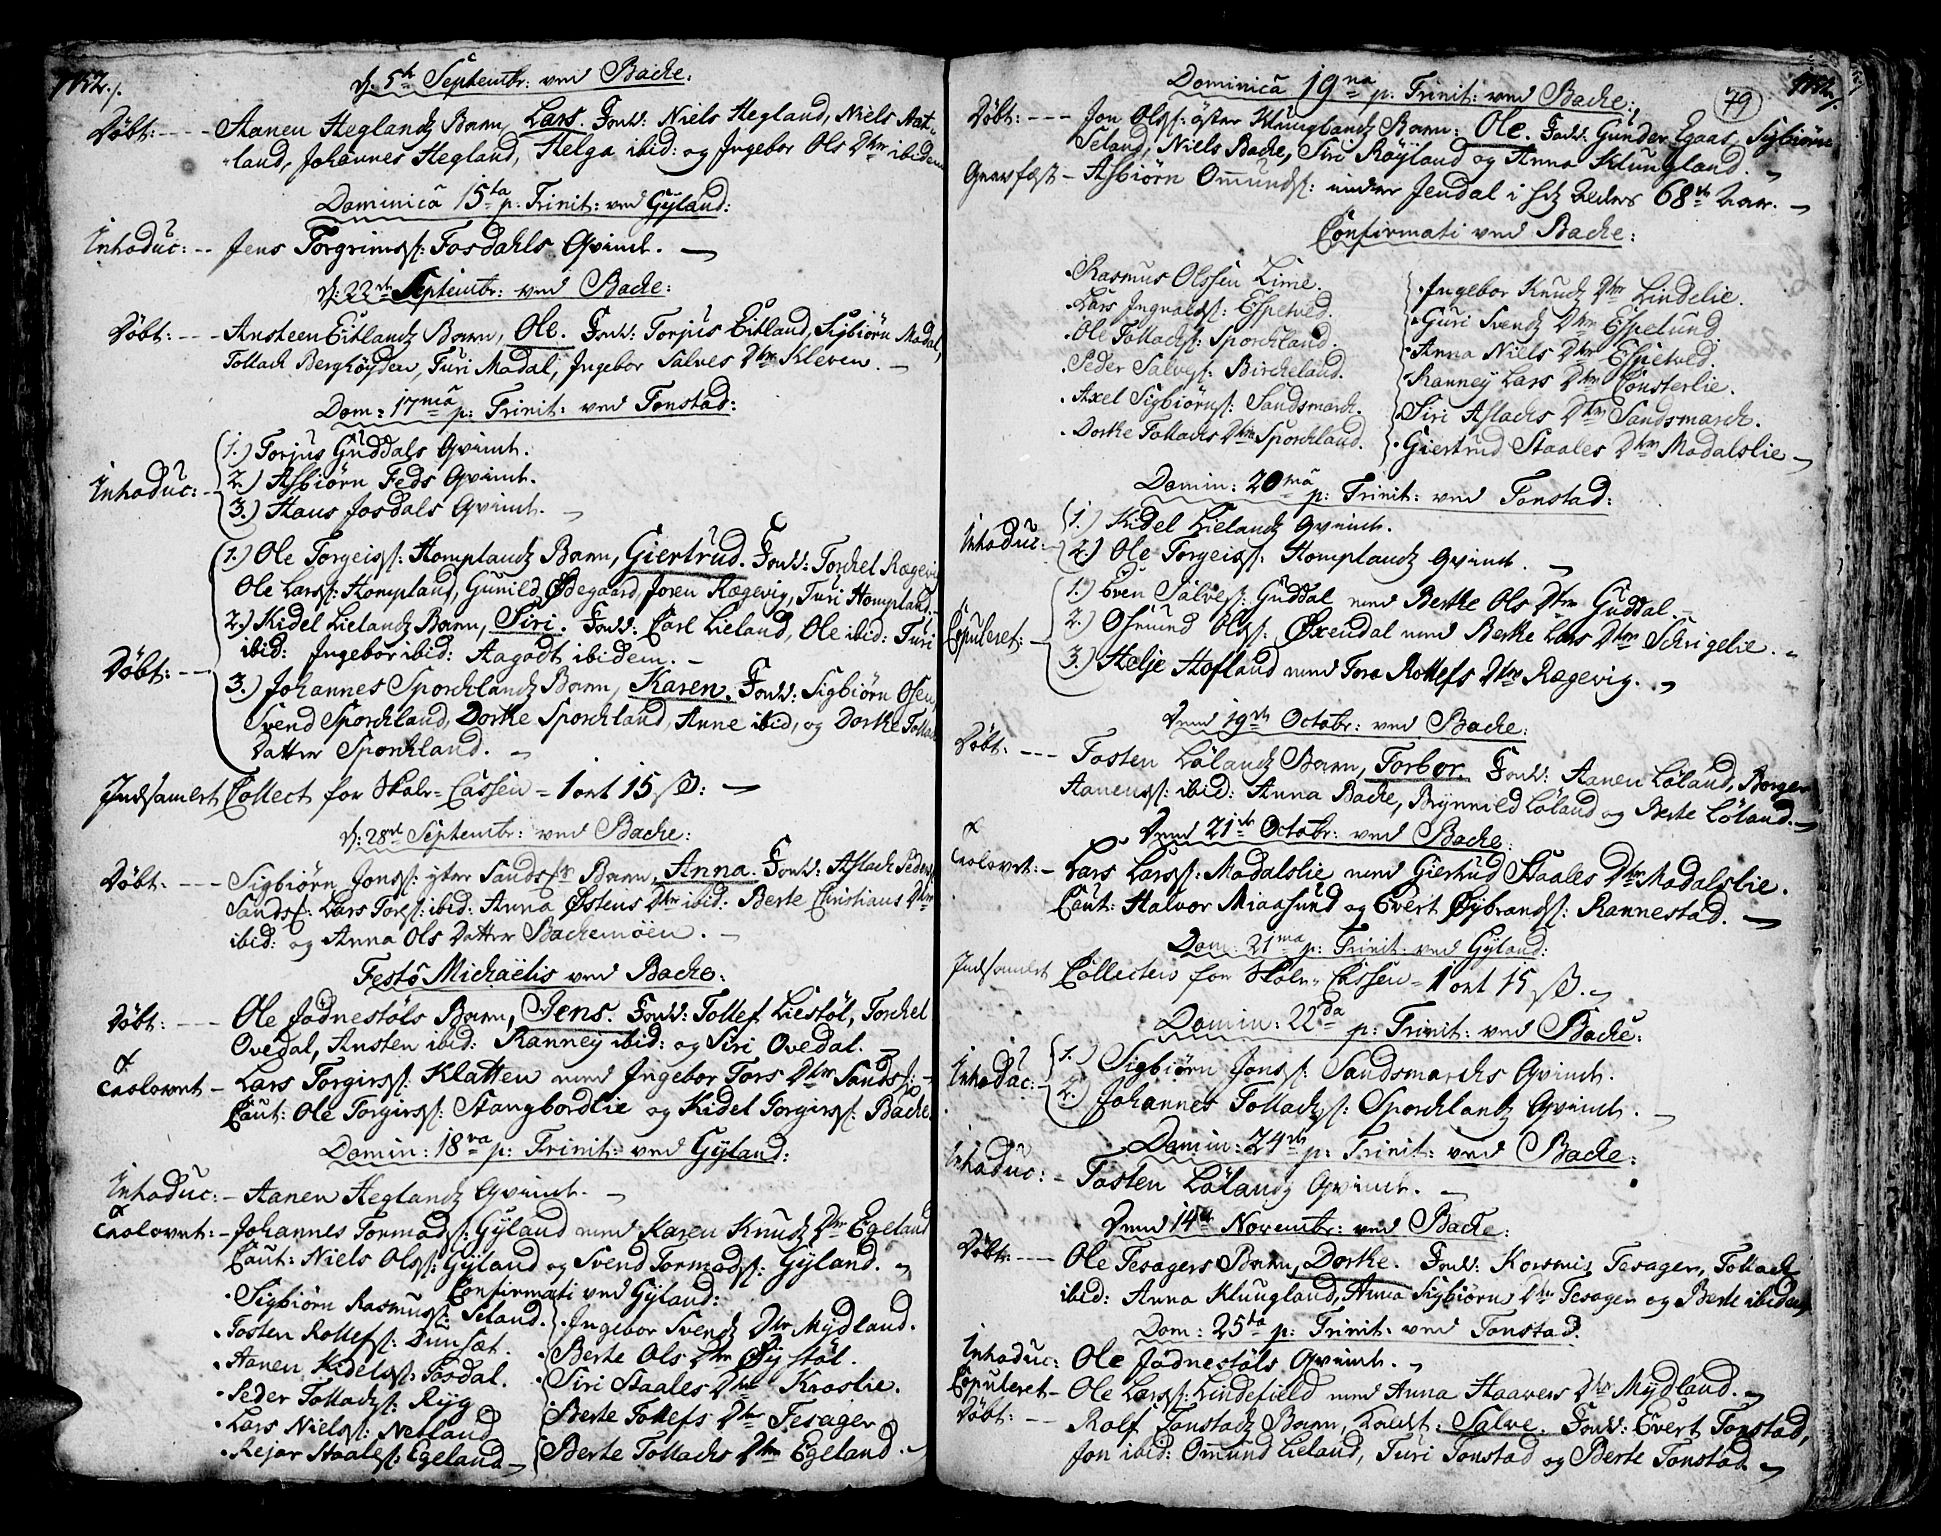 1752./.
d: 5te Septembr: ved Backe:
Döbt: - - - Aanen Heglandz Barn, Lars. Fadd: Niels Hegland, Niels Hat-
land, Johannes Hegland, Helga ibid: og Jngebor Ols Dtr ibidem
Dominica 15ta p: Trinit: ved Gÿland:
Introduc: - - Jens Torgrimsß: Fosdahls Qvinde. -
d: 22de Septembr: ved Backe:
Döbt: - - - Ansteen Eitlandz Barn, Ole. Fadd: Torjus Eitland, Sigbiörn Madal,
Tollack Berghöyden, Turi Madal, Jngebor Salves Dtr Kleven. -
Dom: 17ma p: Trinit: ved Tonstad:
1.) Torjus Guddals Qvinde.
Introduc: - 2.) Asbiörn Feds Qvinde.
3.) Hans Josdals Qvinde. -
1.) Ole Torgeisß: Homplandz Barn, Giertrud. Fadd: Torckel Rægevig
Ole Larsß: Hompland, Gunild Ødegaard, Joren Rægevig, Turi Hompland. -
2.) Kidel Lielandz Barn, Siri. Fadd: Carl Lieland, Ole ibid: Turi
ibid: Jngebor ibid: Aagodt ibidem. -
Döbt: - - 3.) Johannes Sporcklandz Barn, Karen. Fadd: Sigbiörn Osen,
Svend Sporckland, Dorthe Sporckland, Anne ibid, og Dorthe Tollacks
Datter Sporckland. -
Jndsamlet Collect for Skole-Cassen = 1 ort 15 ß: -
d: 28de Septembr: ved Backe:
Döbt: - - - Sigbiörn Jonsß: ytre Sandsm: Barn, Anna. Fadd: Aslack Peders
Sandsß: Lars Toresß: ibid: Anna Østens Dtr ibid: Berte Christians Dtr
ibid: og Anna Ols Datter Backemoen. -
Festo Michaëlis ved Backe:
Döbt: - - - Ole Jödnestöls Barn, Jens. Fadd: Tollef Liestöl, Torckel
Ovedal, Ansten ibid: Ranneÿ ibid: og Siri Ovedal. -
Trolovet - Lars Torgirsß: Klatten med Jngebor Tors Dtr Sandsß: -
Caut: Ole Torgirsß: Stangbordlie og Kidel Torgirsß: Backe
Domin: 18va p: Trinit: ved Gÿland:
Introduc: - Aanen Heglandz Qvinde. -
Trolovet: - Johannes Tormodsß: Gÿland med Karen Knudz Dtr Egeland
Caut: Niels Olsß: Gÿland og Svend Tormodsß: Gÿland. -
Confirmati ved Gÿland:
Sigbiörn Rasmusß: Seland.
Tosten Rollefsß: Dunsæt.
Aanen Kidelsß: Fosdal.
Peder Tollacksß: Rÿg
Lars Nielsß: Netland
Rejar Staalesß: Egeland -
Jngebor Svendz Dtr Mÿdland.
Berte Ols Dtr Eÿestöl.
Siri Staales Dtr Kroslie.
Berte Tollefs Dtr Tesager
Berte Tollacks Dtr Egeland. -
1752./.
79
Dominica 19na p: Trinit: ved Backe:
Döbt: - - - Jon Olsß: öster Klunglandz Barn: Ole. Fadd: Gunder Egaas, Sigbiörn
Seland, Niels Backe, Siri Röÿland og Anna Klungland. -
Gravfæst - Asbiörn Omundsß: under Jendal i sit Alders 68de Aar. -
Confirmati ved Backe:
Rasmus Olssen Lime.
Lars Jngvaldsß: Espetved.
Ole Tollacksß: Sporckland.
Peder Salvesß: Birckeland.
Axel Sigbiörnsß: Sandsmarck.
Dorthe Tollacks Dtr Sporckland.
Jngebor Knudz Dtr Lindelie.
Guri Svendz Dtr Espelund
Anna Niels Dtr Espetved.
Ranneÿ Lars Dtr Consterlie.
Siri Aslacks Dtr Sandsmarck.
Giertrud Staales Dtr Madalslie -
Domin: 20ma p: Trinit: ved Tonstad:
Introduc: 1.) Kidel Lielandz Qvinde.
2.) Ole Torgeisß: Homplandz Qvinde. -
1.) Even Salvesß: Guddal med Berthe Ols Dtr Guddal. -
Copuleret: - 2.) Osmund Olsß: Øxendal med Berthe Lars Dtr Schregelie. -
3.) Helje Hofland med Tore Rollefs Dtr Rægevig. -
Dend 19de Octobr: ved Backe:
Döbt: - - - Tosten Lölandz Barn, Torbor. Fadd: Aanen Löland, Borger
Aanensß: ibid: Anna Backe, Brÿnnild Löland og Berte Löland. -
Dend 21de Octobr: ved Backe:
Trolovet: - Lars Larsß: Madalslie med Giertrud Staales Dtr Madalslie.
Caut: Halvor Miaasund og Evert Øÿbrandsß: Rannestad. -
Dom: 21ma p: Trinit: ved Gÿland:
Jndsamlet Collecten for Skole-Cassen = 1 ort 15 ß. -
Domin: 22da p: Trinit: ved Backe:
Introduc: - 1.) Sigbiörn Jonsß: Sandsmarcks Qvinde.
2.) Johannes Tollacksß: Sporcklandz Qvinde. -
Domin: 24de p: Trinit: ved Backe:
Introduc: - Tosten Lölandz Qvinde. -
Dend 14de Novembr: ved Backe:
Döbt: - - - Ole Tesagers Barn, Dorthe. Fadd: Korsmis Tesager, Tollack
ibid: Anna Klungland, Anna Sigbiörns Dtr Tesager og Berte ibidem
Dom: 25ta p: Trinit: ved Tonstad.
Introduc: Ole Jödnestöls Qvinde. -
Copuleret - Ole Larsß: Lindefield med Anna Haavers Dtr Mÿdland. -
Döbt: - - Rolf Tonstadz Barn, kaldet: Salve. Fadd: Evert Tonstad,
Jon ibid: Omund Lieland, Turi Tonstad og Berte Tonstad -